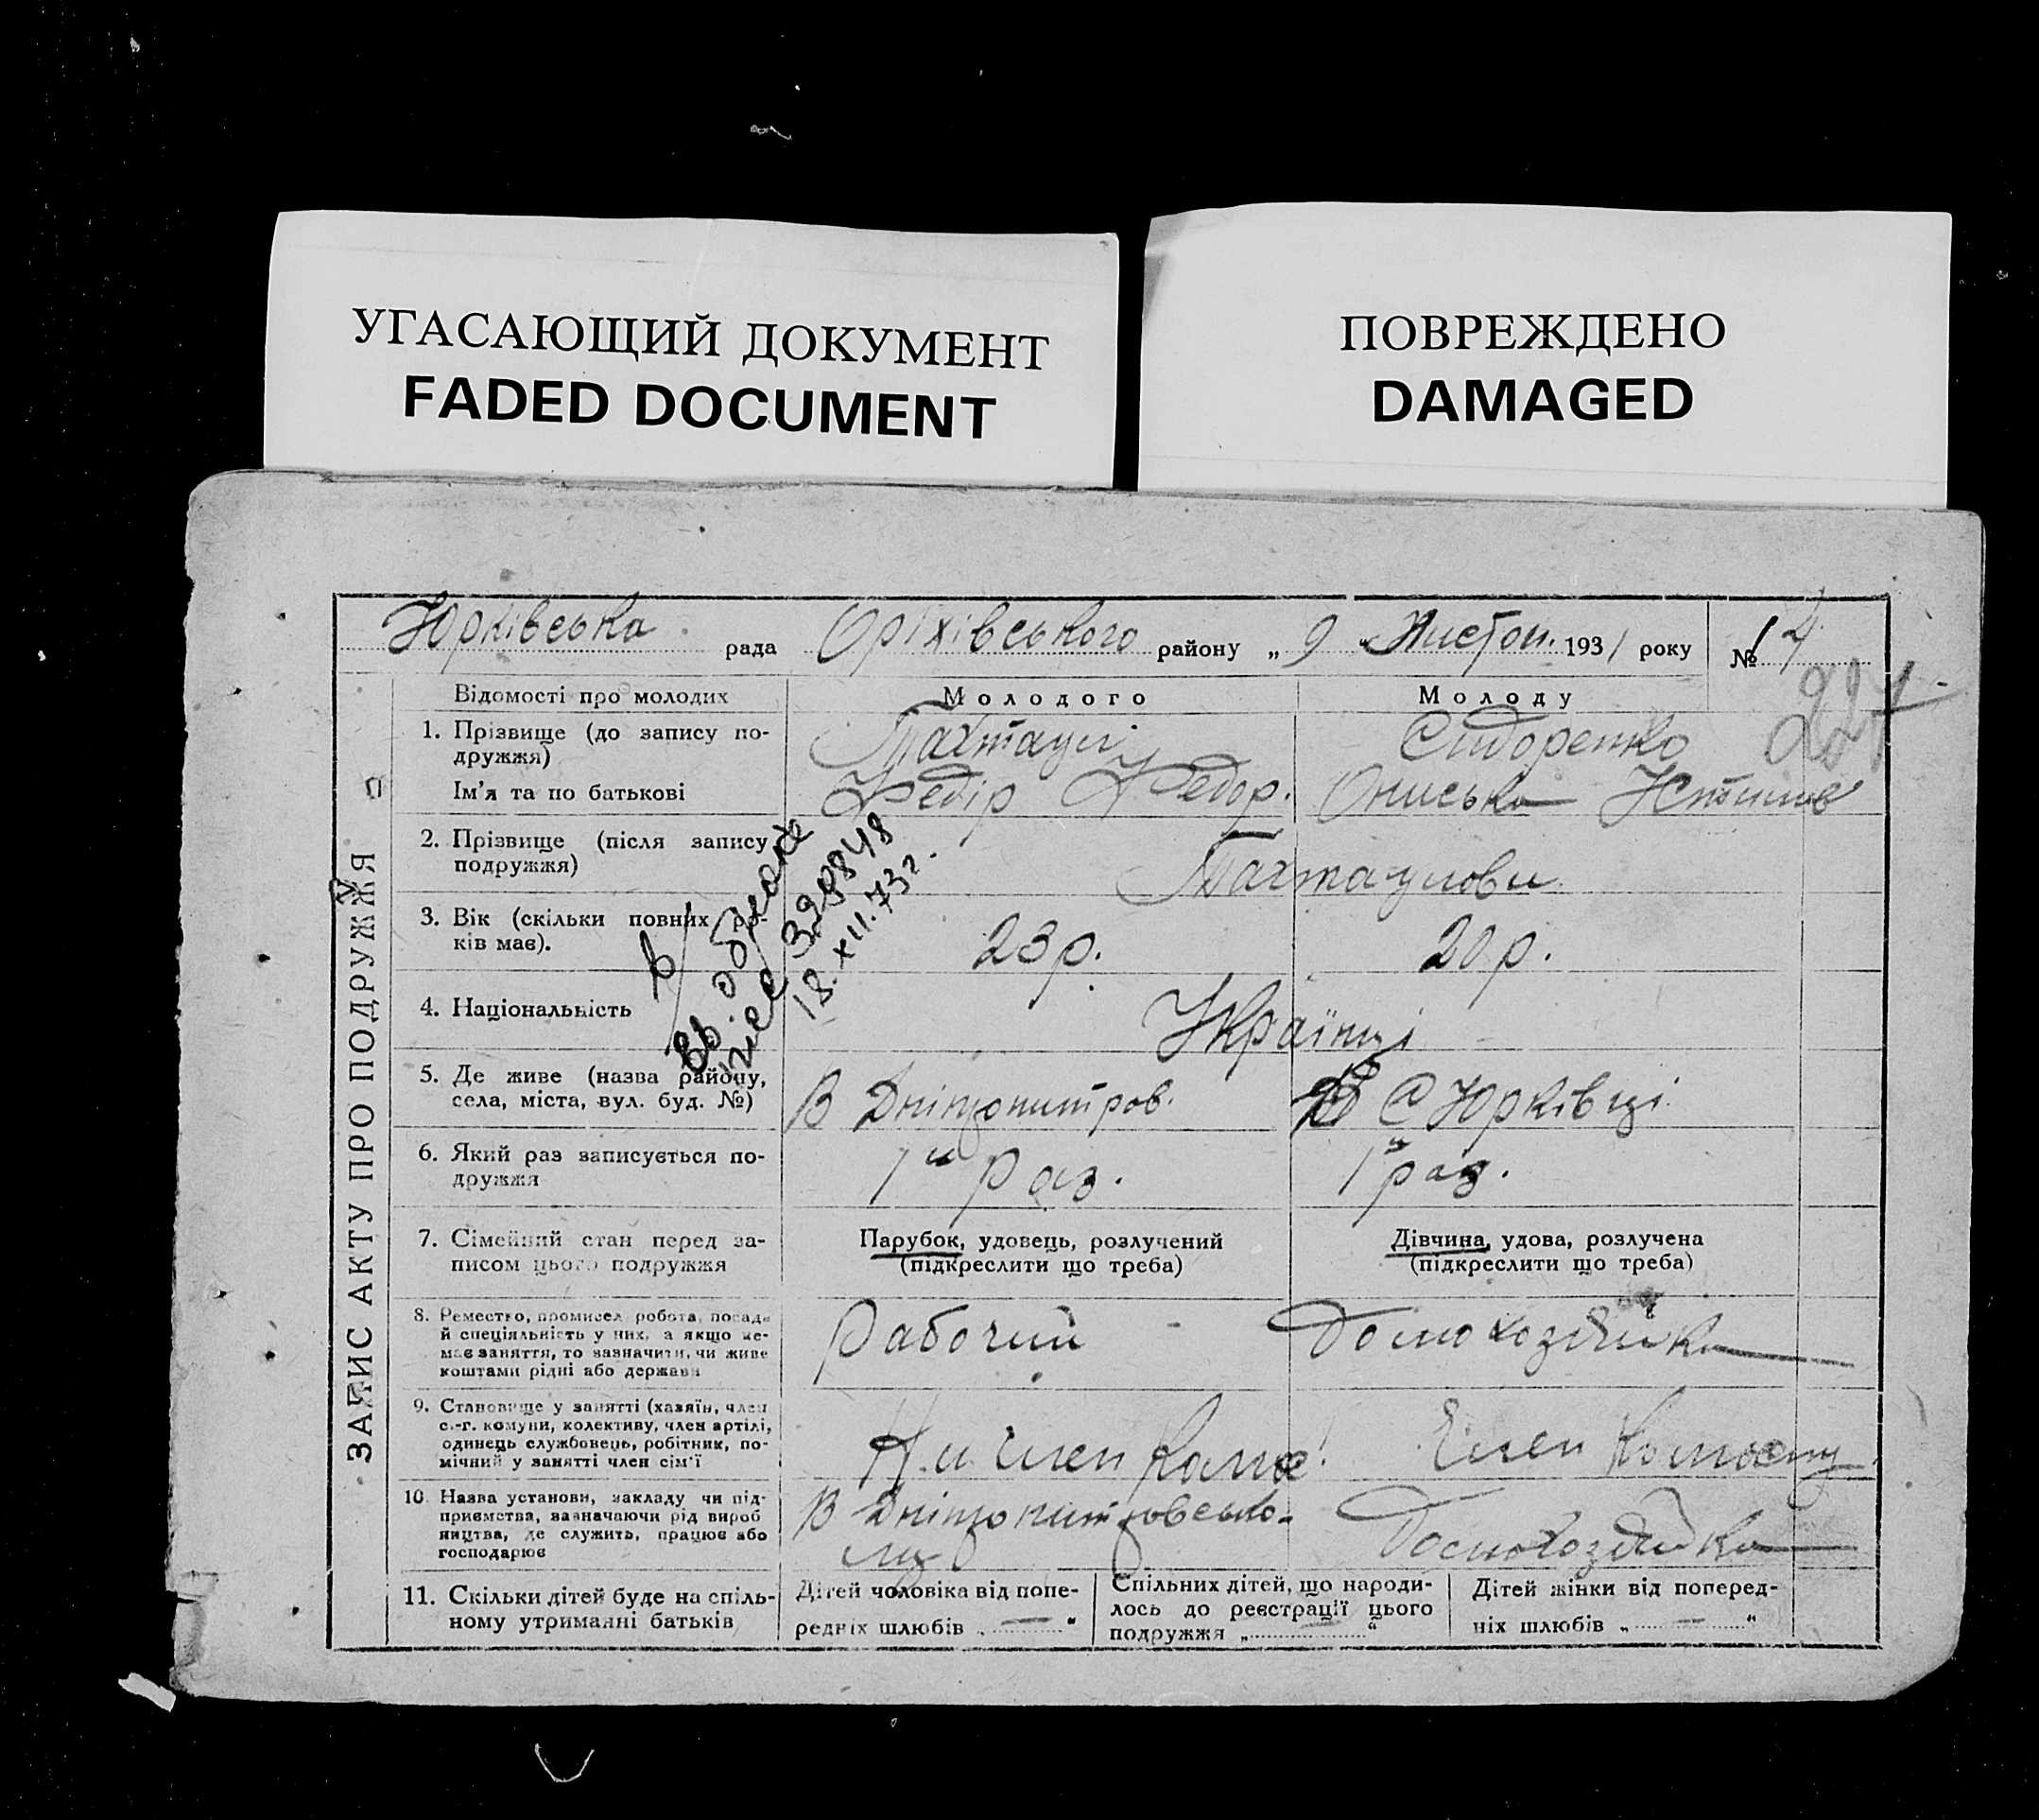 УГАСАЮЩИЙ ДОКУМЕНТ
FADED DOCUMENT
ПОВРЕЖДЕНО
DAMAGED
Юрківська рада Оріхівського району „ 9 " Листоп. 1931 року № 14
221
ЗАПИС АКТУ ПРО ПОДРУЖЖЯ
Відомості про молодих
Молодого
Молоду
1. Прізвище (до запису по-
дружжя)
Сидоренко
Ім'я та по батькові
Федір Федор.
Ониська
2. Прізвище (після запису
подружжя)
3. Вік (скільки повних ро-
ків має).
23 р.
20 р.
398848
18.XII.73г.
4. Національність
Українці
5. Де живе (назва району,
села, міста, вул. буд. №)
В Дніпропитров.
С Юрківці
6. Який раз записується по-
дружжя
1й раз.
1й раз.
7. Сімейний стан перед за-
писом цього подружжя
Парубок, удовець, розлучений
(підкреслити що треба)
Дівчина, удова, розлучена
(підкреслити що треба)
8. Ремество, промисел робота, посада
й спеціяльність у них, а якщо не-
має заняття, то зазначити, чи живе
коштами рідні або держави
Рабочий
Домохозяйка
9. Становище у занятті (хазяїн, член
с.-г. комуни, колективу, член артілі,
одинець службовець, робітник, по-
мічний у занятті член сім'ї
член
Член
10. Назва установи, закладу чи під-
приємства, вазначаючи рід вироб
ництва, де служить, працює або
господарює
В Дніпропитровсько-
му
Домохозяйка
11. Скільки дітей буде на спіль-
ному утриманні батьків
Дітей чоловіка від попе-
редніх шлюбів „ — "
Спільних дітей, що народи-
лось до реєстрації цього
подружжя „ — "
Дітей жінки від поперед-
ніх шлюбів „ — "